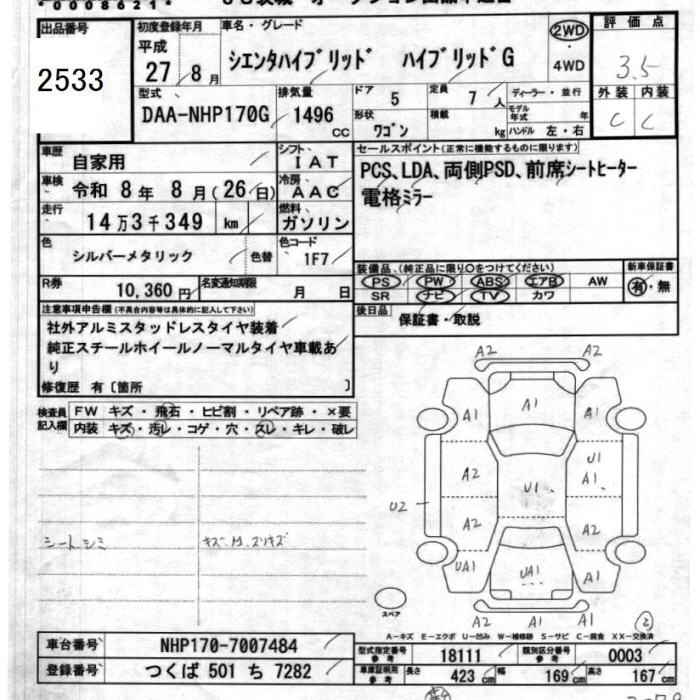 *00086210*
出品番号
2533
初度登録年月
平成
27 / 8 月
車名・グレード
シエンタハイブリッド ハイブリッドG
2WD
・
4WD
評価点
3.5
外装 内装
C C
型式
DAA-NHP170G
排気量
1496
CC
ドア
5
定員
7 人
ディーラー・並行
モデル年式 年
形状
ワゴン
積載
kg
ハンドル 左・右
車歴
自家用
シフト
IAT
車検
令和 8 年 8 月 (26 日)
冷房
AAC
走行
14 万 3 千 349 km
燃料
ガソリン
色
シルバーメタリック
色替
色コード
1F7
R券
10,360 円
名変通知期限
月 日
セールスポイント(正常に機能するものに限ります)
PCS、LDA、両側PSD、前席シートヒーター
電格ミラー
装備品、(純正品に限り○をつけてください)
PS PW ABS エアB AW
SR ナビ TV カワ
新車保証書
有・無
後日品
保証書・取説
注意事項申告欄(不具合内容等は具体的に記入して下さい)
社外アルミスタッドレスタイヤ装着
純正スチールホイールノーマルタイヤ車載あ
り
修復歴 有〔箇所 〕
検査員
記入欄
FW キズ・飛石・ヒビ割・リペア跡・×要
内装 キズ・汚レ・コゲ・穴・スレ・キレ・破レ
シート シミ
キズ スリキズ
A2 A2
A1
A1 A1
A2
U1
U1
A1
U2
A2
A2
UA1
UA1
A1
A2 A1 A1
2
スペア
A-キズ E-エクボ U-凹み W-補修跡 S-サビ C-腐食 XX-交換済
車台番号
NHP170-7007484
型式指定番号
参考
18111
類別区分番号
参考
0003
登録番号
つくば 501 ち 7282
車庫証明用
参考
長さ
423 cm
幅
169 cm
高さ
167 cm